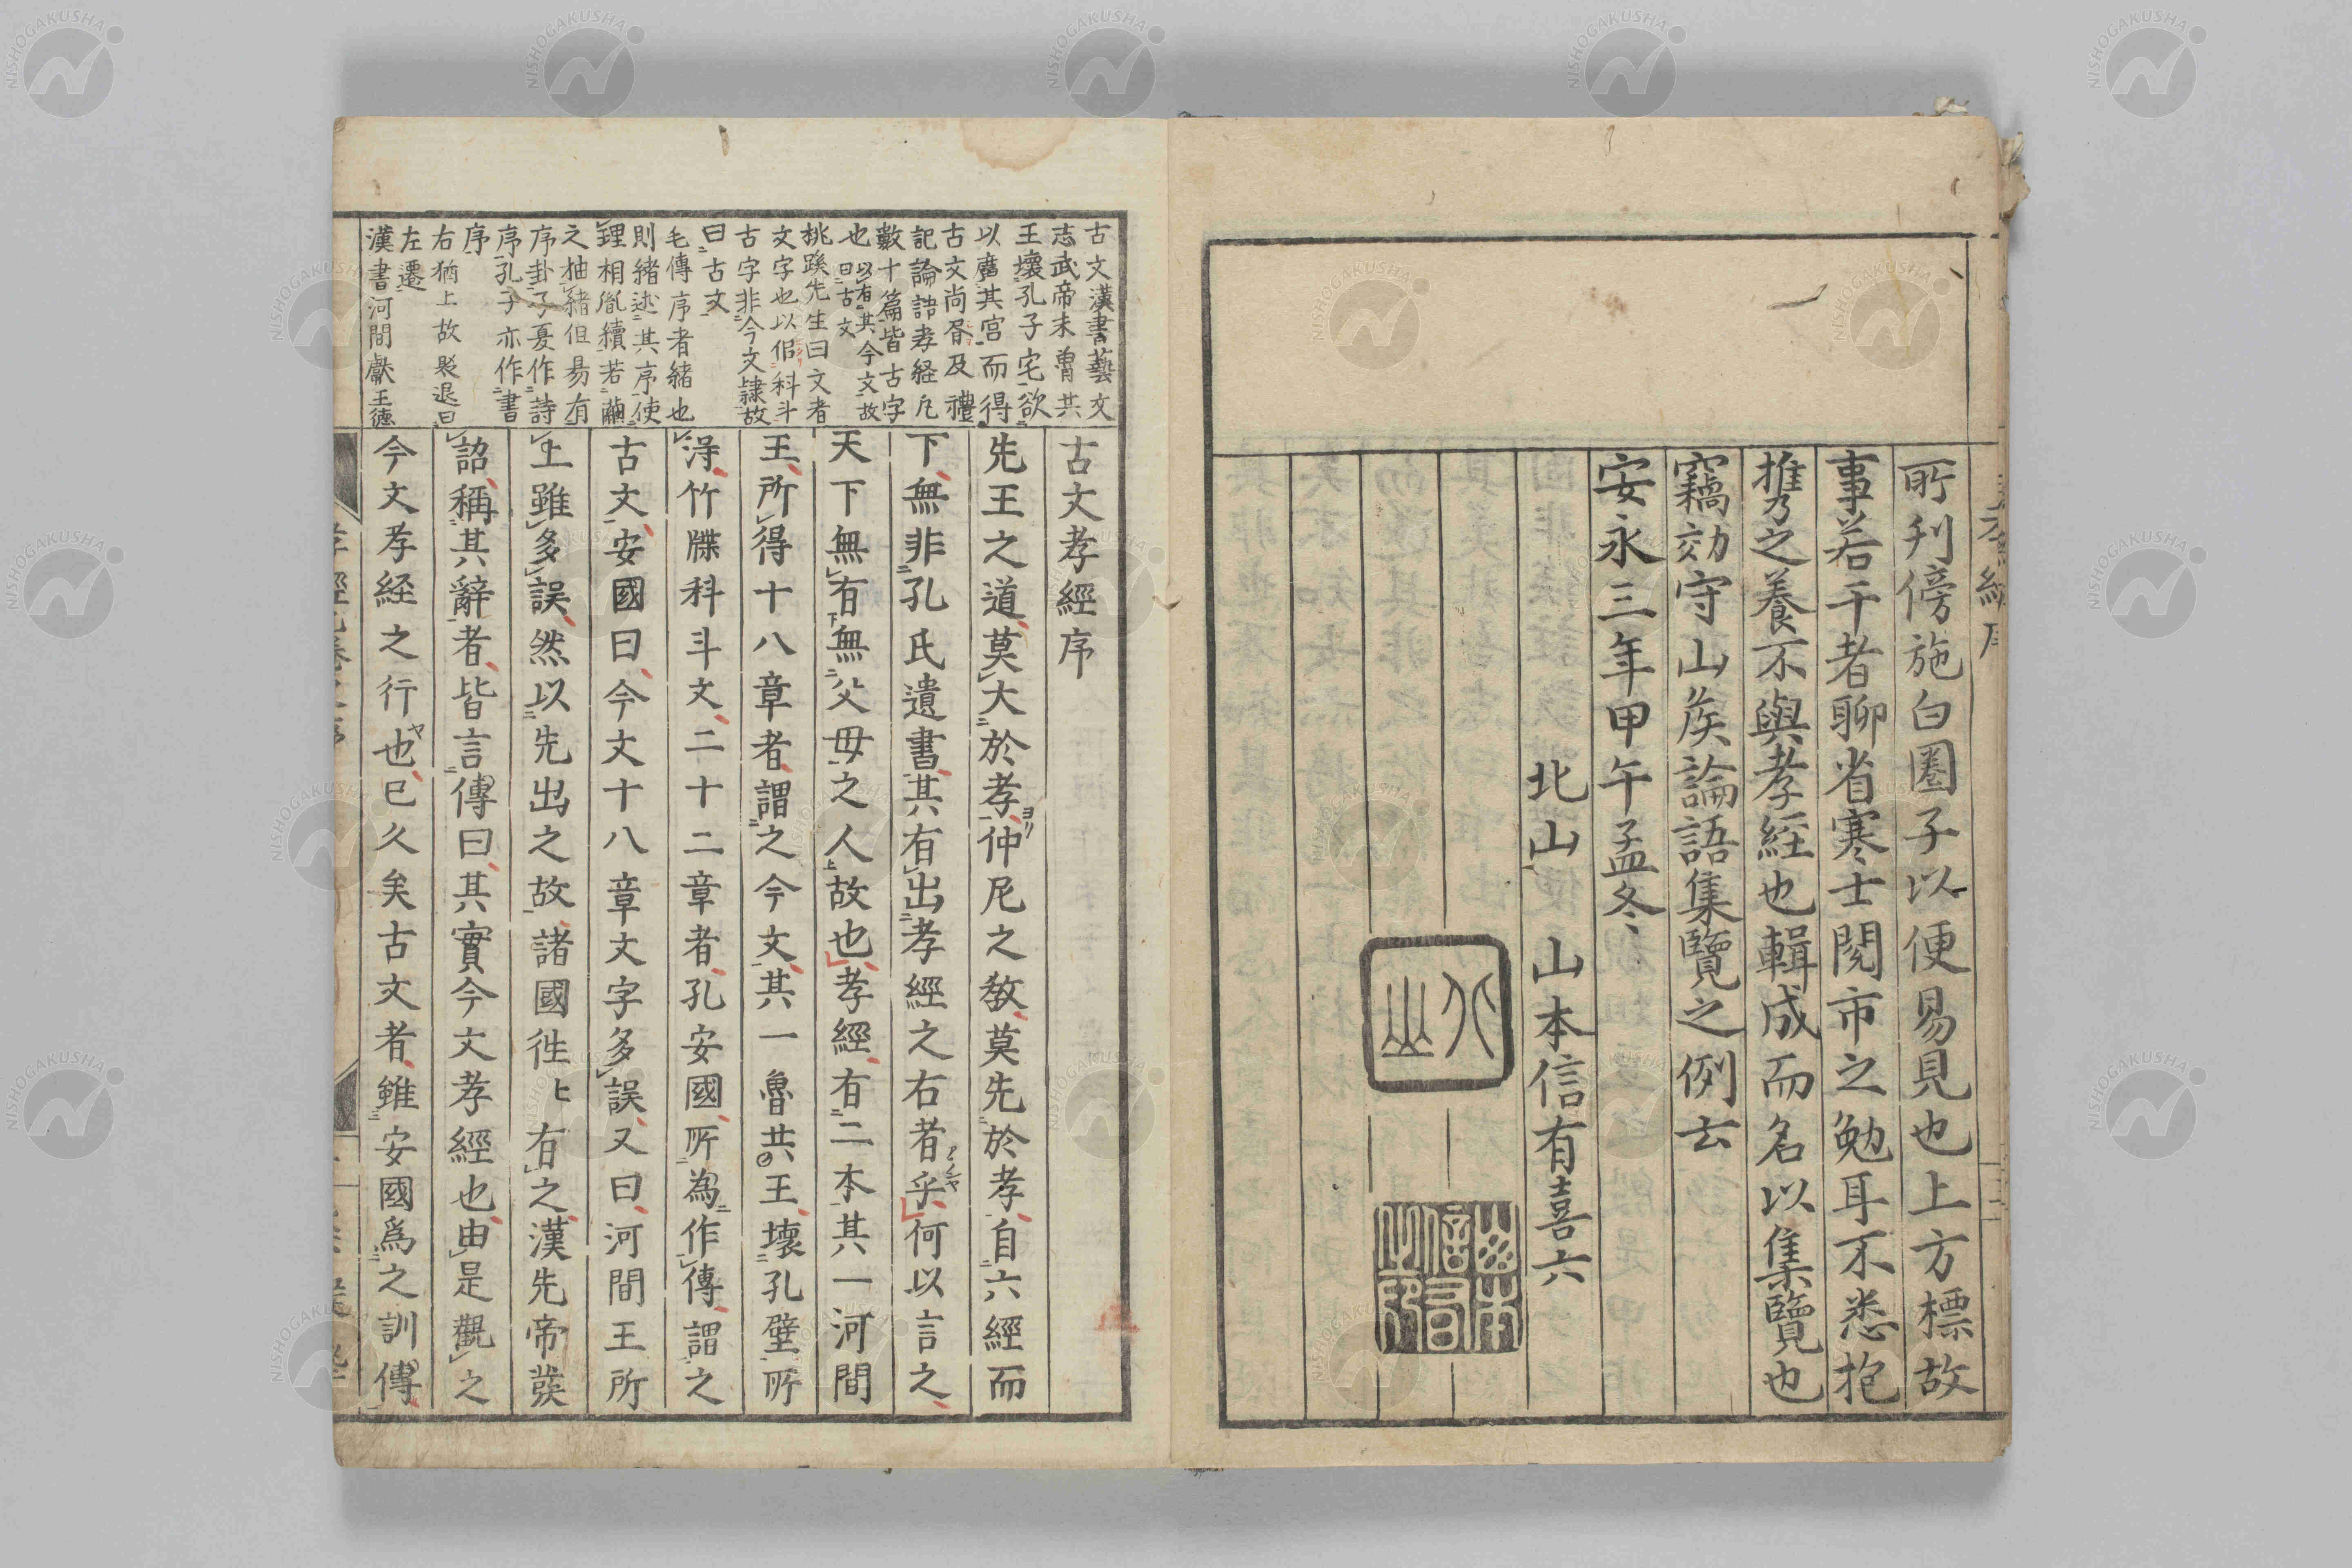 所刋傍施白圏子以便易見也上方標故
事若干者聊省寒士閱市之勉耳不悉抱
推乃之養不與孝經也輯成而名以集覽也
竊效守山矦論語集覽之例云
安永三年甲午孟冬
北山 山本信有喜六
古文漢書藝文
志武帝末魯共
王壞孔子宅欲
以廣其宮而得
古文尚書及禮
記論語孝経凡
數十篇皆古字
也以有其今文故曰古文
桃蹊先生曰文者
文字也以俗科斗
古字非今文隷故
曰古文
毛傳序者緒也
則緒述其序使
理相胤續若繭
之抽緒但易有
序卦子夏作詩
序孔子亦作書
序
右猶上故貶退曰
左遷
漢書河間獻王德
古文孝經序
先王之道莫大於孝仲尼之敎莫先於孝自六經而
下無非孔氏遺書其有出孝經之右者乎何以言之
天下無有無父母之人故也孝經有二本其一河間
王所得十八章者謂之今文其一魯共王壞孔壁所
淂竹牒科斗文二十二章者孔安國所為作傳謂之
古文安國曰今文十八章文字多誤又曰河間王所
上雖多誤然以先出之故諸國徃〻有之漢先帝發
詔稱其辭者皆言傳曰其實今文孝經也由是觀之
今文孝経之行也已久矣古文者雖安國爲之訓傳